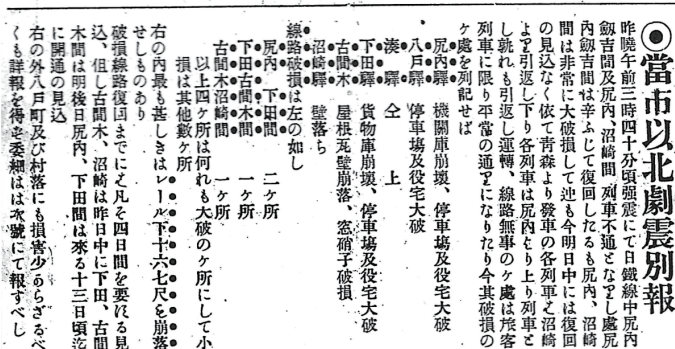 ◉當市以北劇震別報
昨曉午前三時四十分頃強震にて日鐵線中尻內
劔吉間及尻內、沼崎間 列車不通となりし處尻
內劔吉間は辛ふじて復回したるも尻內、沼崎
間は非常に大破損して迚も今明日中には復回
の見込なく依て青森より發車の各列車は沼崎
より引返し下り各列車は尻內より上り列車と
し孰れも引返し運轉、線路無事のヶ處は旅客
列車に限り平常の通りになりたり今其破損の
ヶ處を列記せば
尻內驛 機關庫崩壞、停車塲及役宅大破
八戶驛 停車塲及役宅大破
湊驛 仝上
下田驛 貨物庫崩壞、停車塲及役宅大破
古間木 屋根瓦壁崩落、窓硝子破損
沼崎驛 壁落ち
線路破損は左の如し
尻內 下田間 二ヶ所
下田古間木間 一ヶ所
古間木沼崎間 一ヶ所
以上四ヶ所は何れも大破のヶ所にして小
損は其他數ヶ所
右の內最も甚しきはレール下十六七尺を崩落
せしものあり
破損線路復回までには凡そ四日間を要する見
込、但し古間木、沼崎は昨日中に下田、古間
木間は明後日尻內、下田間は來る十三日頃迄
に開通の見込
右の外八戶町及び村落にも損害少からざるべ
くも詳報を得ず委細は次號にて報すべし